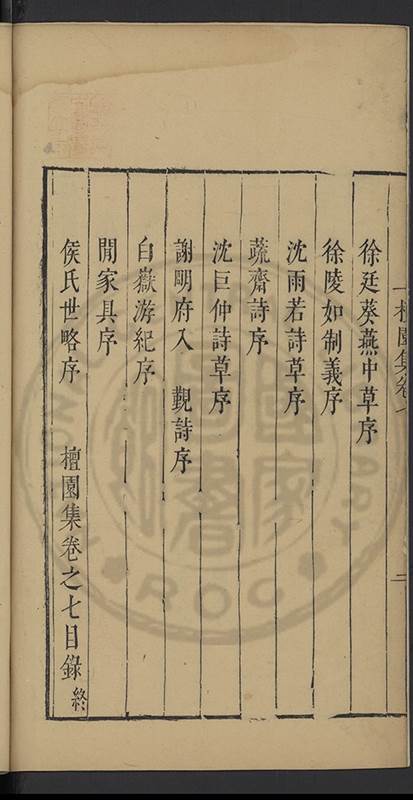 檀園集卷七
二
徐廷葵燕中草序
徐陵如制義序
沈雨若詩草序
蔬齋詩序
沈巨仲詩草序
謝明府入　覲詩序
白嶽游紀序
閒家具序
侯氏世略序　檀園集卷之七目錄終